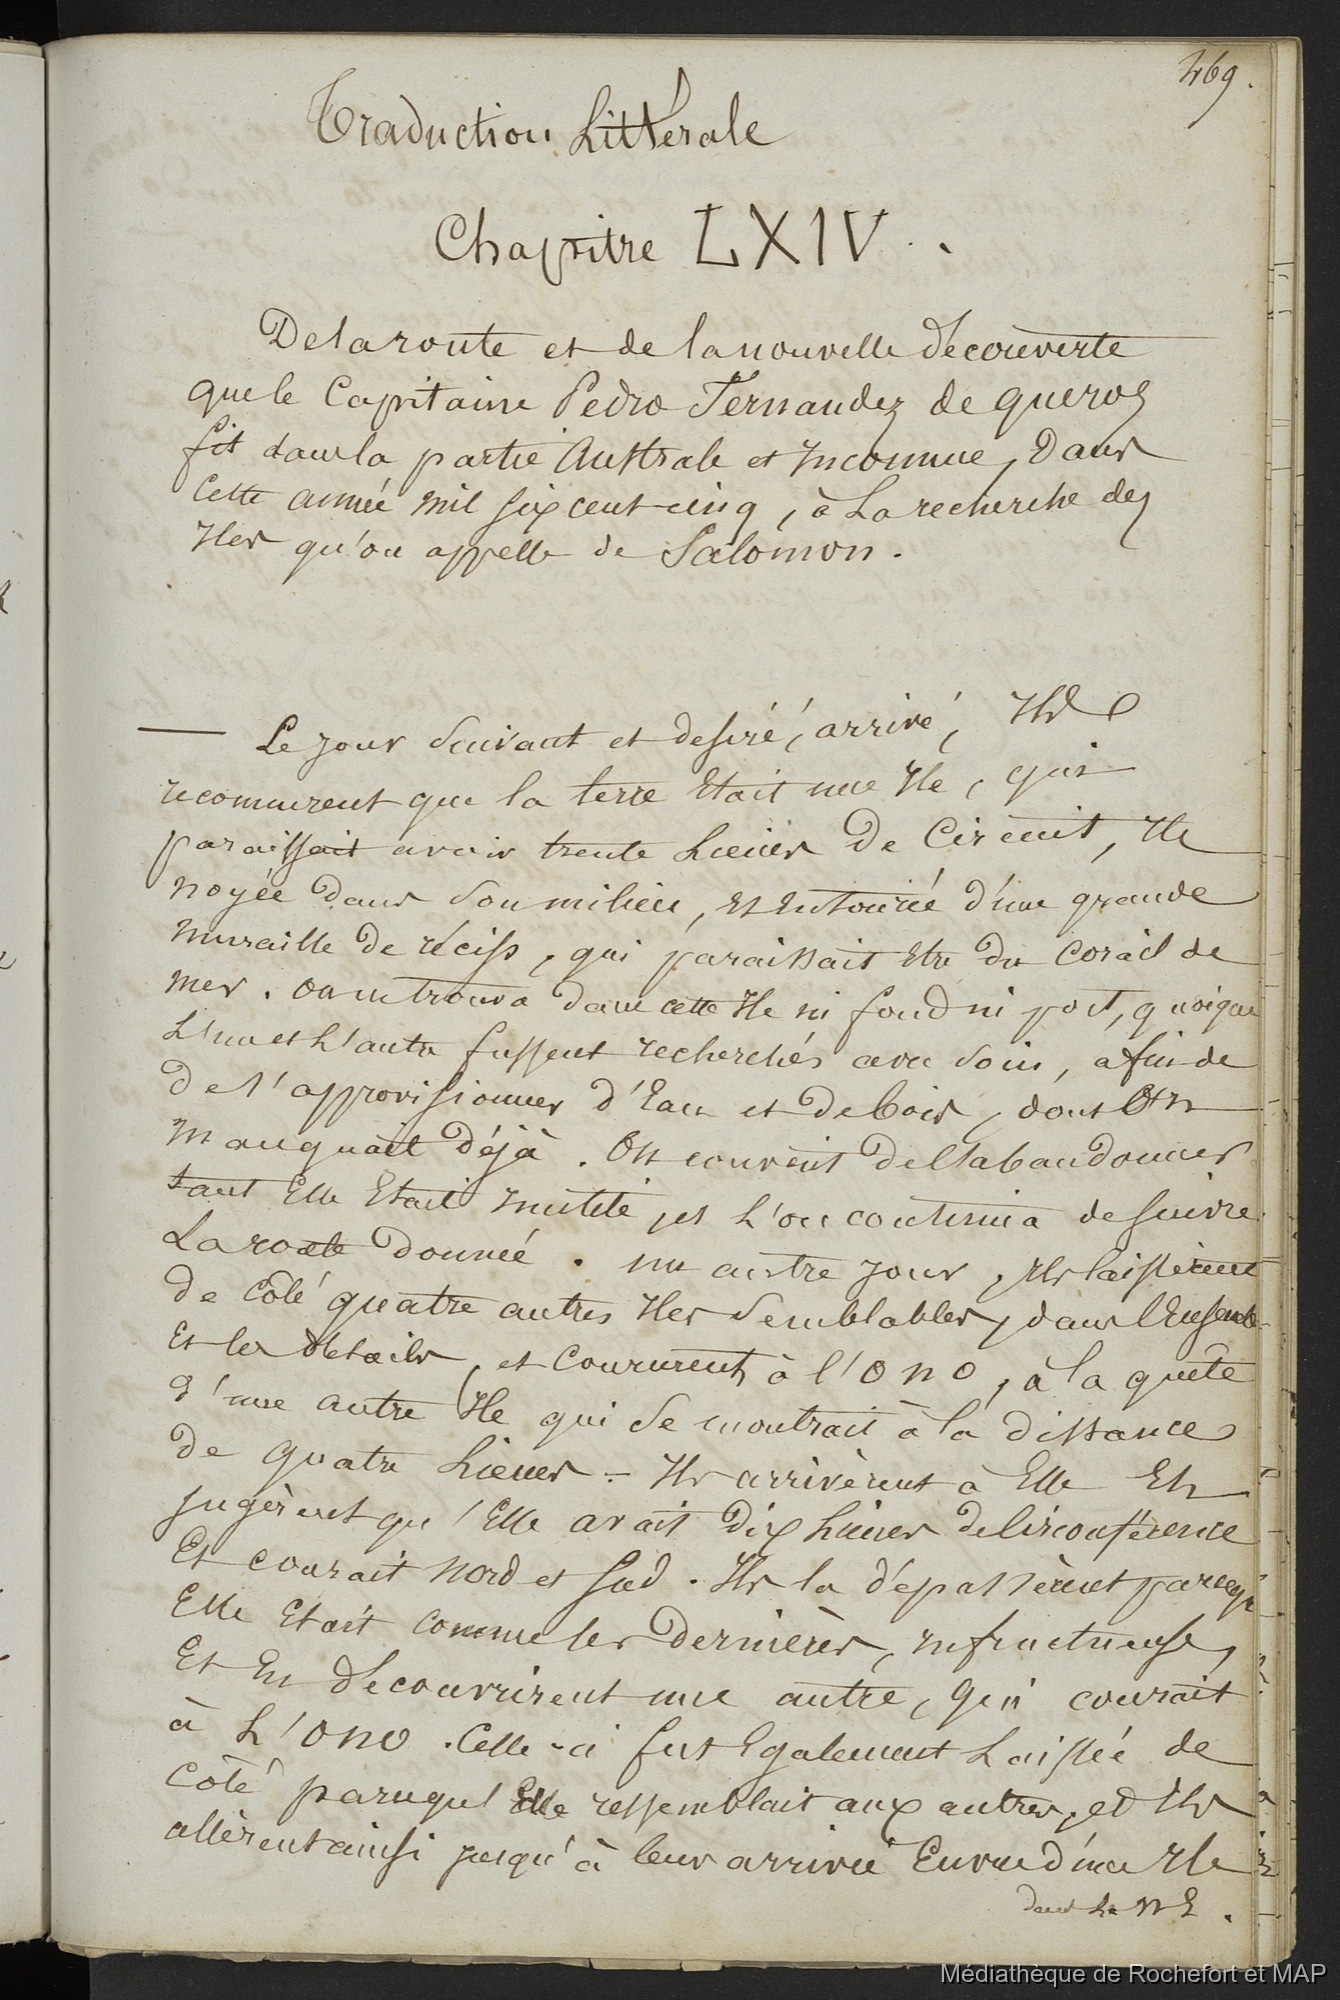 469.
Traduction Littérale
Chapitre LXIV.
De la route et de la nouvelle découverte
que le Capitaine Pedro Fernandez de queros
fit dans la partie Australe et Inconnue, Dans
Cette année mil six cent-cinq, à La recherche des
Iles qu'on appelle de Salomon.
Le jour Suivant et desiré, arrivé, Ils
reconnurent que la terre Etait une Ile, qui
paraissait avoir trente Lieües De Circuit, Ile
noyée Dans Son milieu, Et Entourée d'une grande
muraille De récifs, qui paraissait Etre Du Corail de
mer. On ne trouva dans cette Ile ni fond ni port, quoique
L'un et L'autre fussent recherchés avec Soin, afin de
De s'approvisionner d'Eau et de bois, dont On
manquait Déjà. On convint De l'abandonner
tant Elle Etait Inutile, et L'on continua de Suivre
La route Donnée. Un autre jour, Ils laissèrent
de Côté quatre autres Iles Semblables, dans l'Ensemble
Et les Détails, et Coururent à l'ONO, à la quête
d'une autre Ile qui Se montrait à la Distance
De quatre Lieues. - Ils arrivèrent à Elle Et
Jugèrent qu'Elle avait Dix Lieues de Circonférence
Et Courait Nord et Sud. Ils la dépassèrent parcequ'
Elle Etait Comme les Dernières, Infructueuse,
Et En Découvrirent une autre, Qui courait
à L'ONO. Celle-ci fut Egalement Laissée de
Côté parcequ'Elle ressemblait aux autres, et Ils
allèrent ainsi jusqu'à leur arrivée En vue d'une Ile
dans Le NE.
Médiathèque de Rochefort et MAP